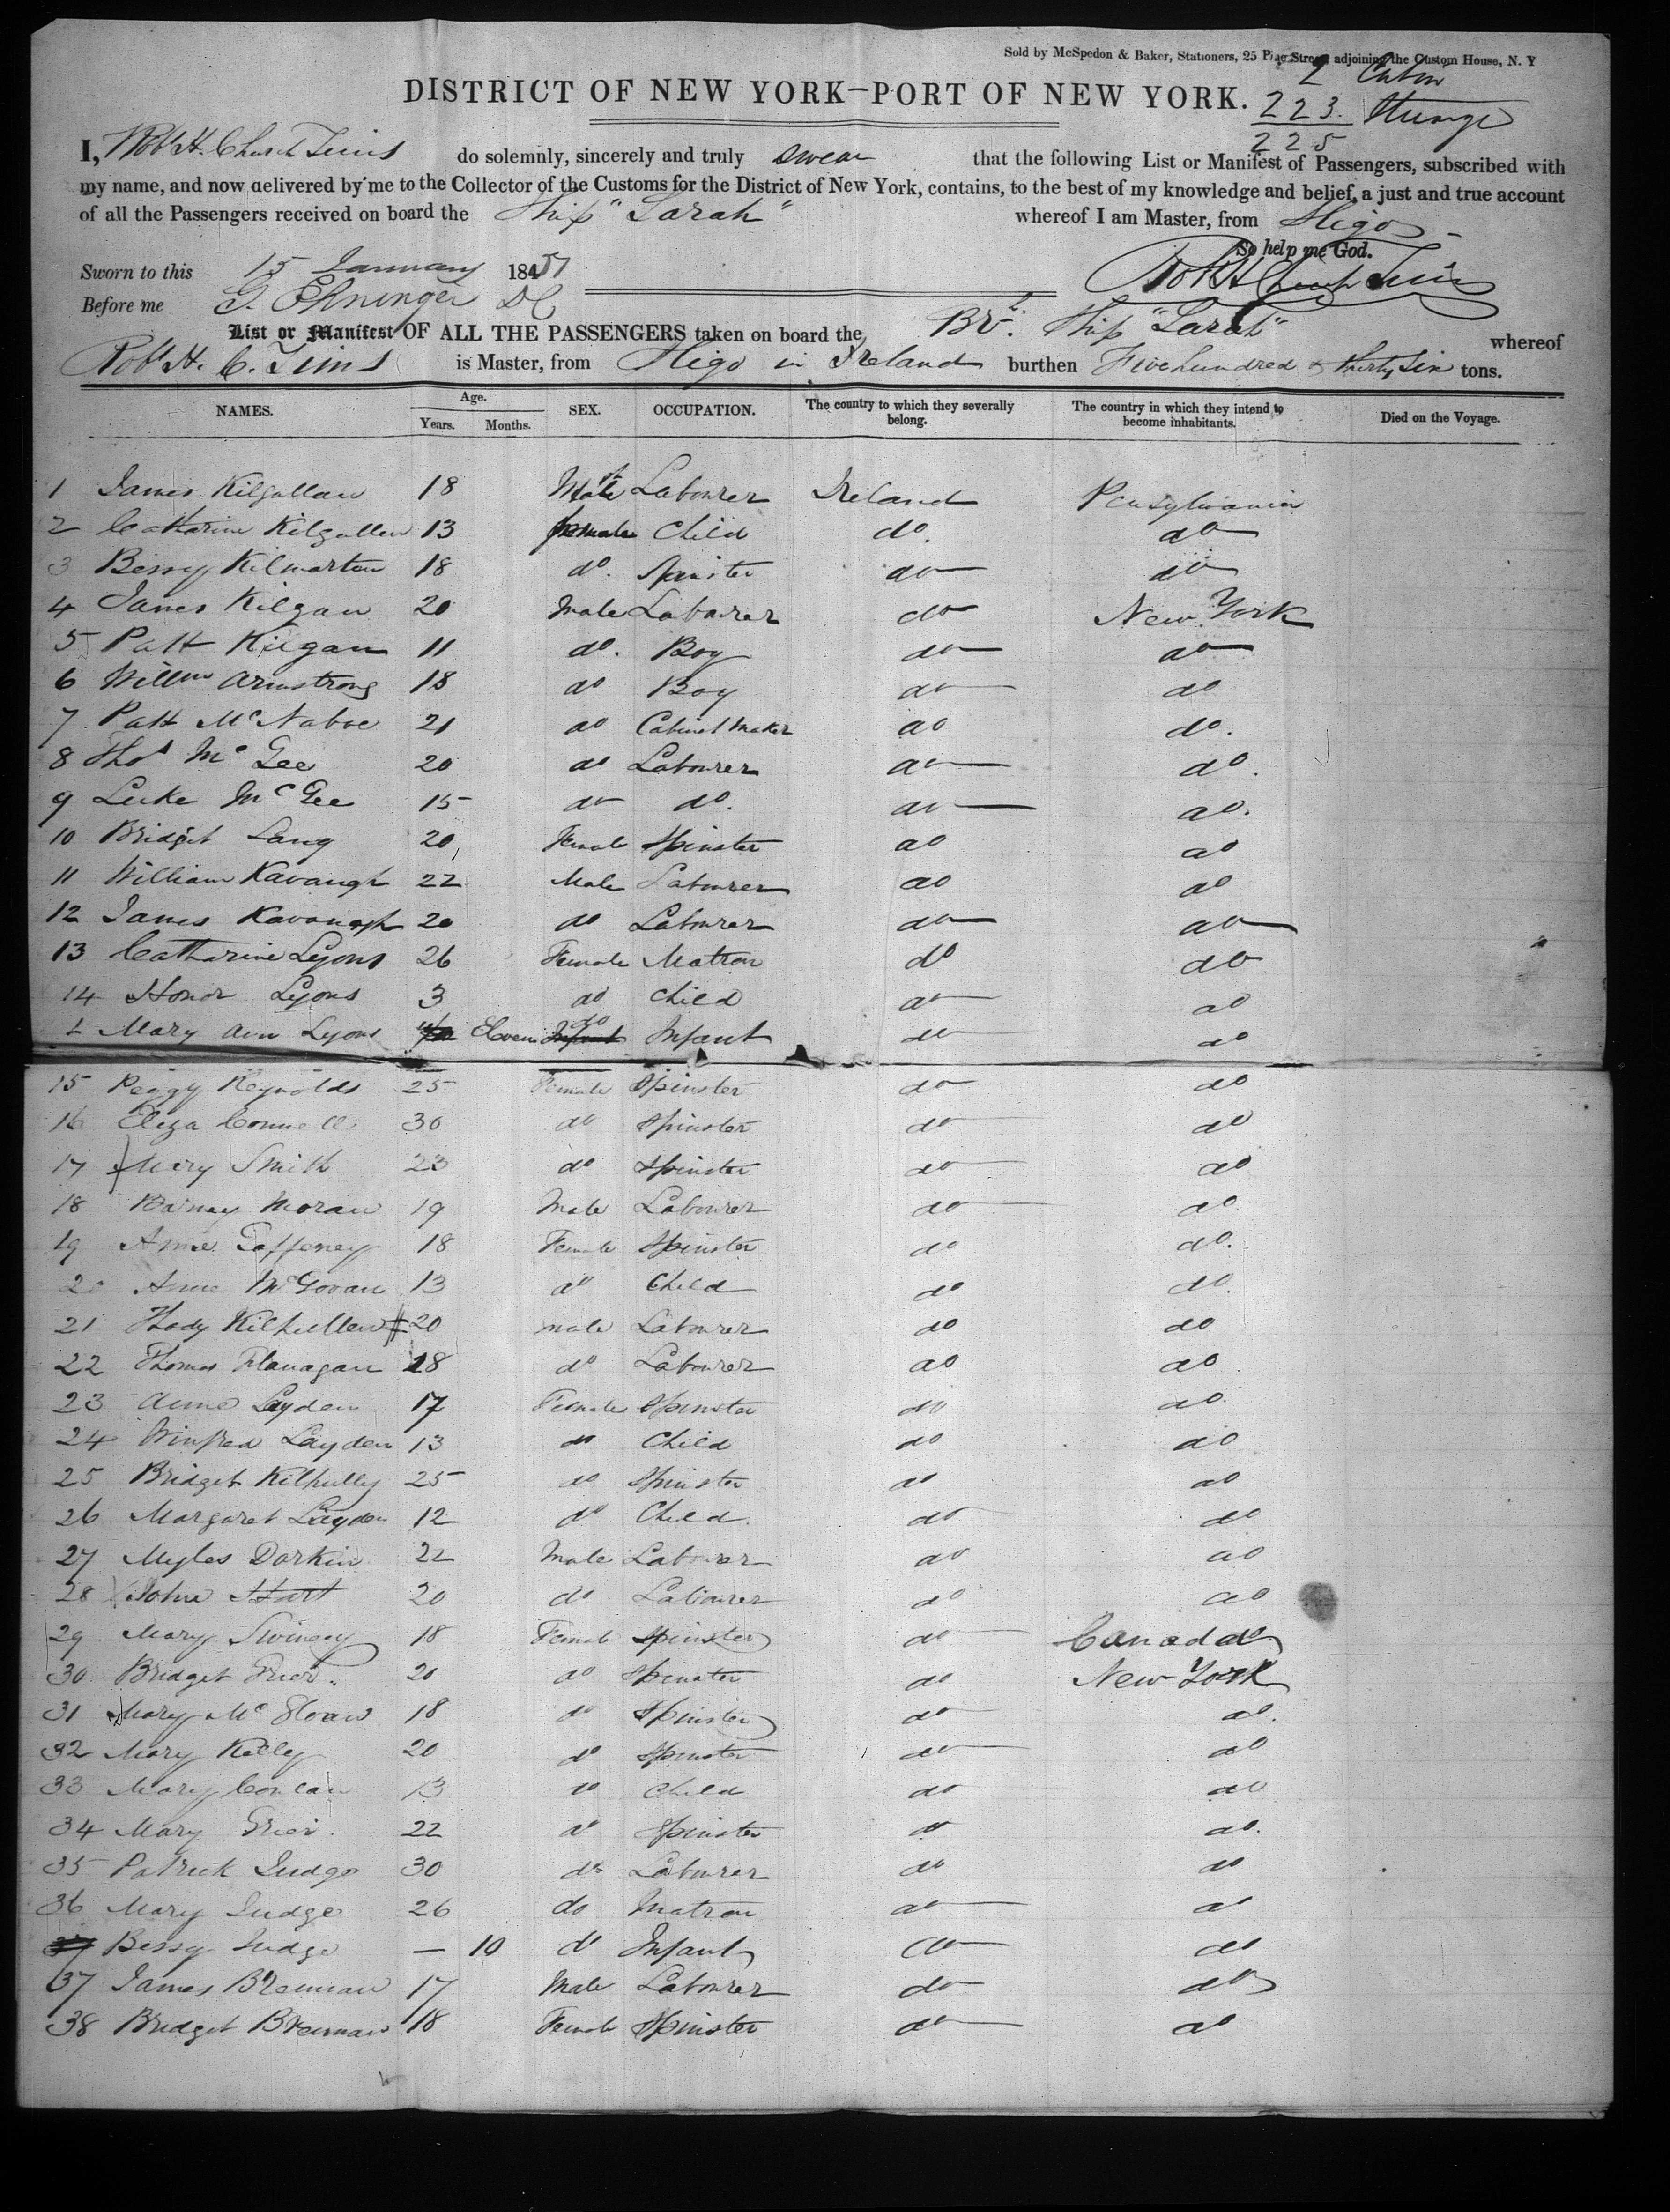 Sold by McSpedon & Baker, Stationers, 25 Pine Street adjoining the Custom House, N. Y
2 Cabin
DISTRICT OF NEW YORK—PORT OF NEW YORK.
223. Steerage
225
I, Robt H. Church Tims do solemnly, sincerely and truly swear that the following List or Manifest of Passengers, subscribed with
my name, and now delivered by me to the Collector of the Customs for the District of New York, contains, to the best of my knowledge and belief, a just and true account
of all the Passengers received on board the Ship "Sarah" whereof I am Master, from Sligo
So help me God.
Sworn to this 15 January 1851 Robt H Church Tims
Before me G. Ehninger DC
List or Manifest OF ALL THE PASSENGERS taken on board the Br. Ship "Sarah" whereof
Robt H. C. Tims is Master, from Sligo in Ireland burthen Five hundred & thirty six tons.
NAMES. Age. Years. Months. SEX. OCCUPATION. The country to which they severally belong. The country in which they intend to become inhabitants. Died on the Voyage.
1 James Kilgallan 18 Male Labourer Ireland Pensylvania
2 Catharine Kilgallen 13 female Child do. do
3 Bessy Kilmartin 18 do. Spinster do do
4 James Kilgan 20 Male Labourer do New York
5 Patt Kilgan 11 do. Boy do do
6 Willm Armstrong 18 do Boy do do
7 Patt McNaboe 21 do Cabinet Maker do do.
8 Thos McGee 20 do Labourer do do.
9 Luke McGee 15 do do. do do.
10 Bridget Lang 20 Female Spinster do do
11 William Kavaugh 22 Male Labourer do do
12 James Kavonagh 20 do Labourer do do
13 Catharine Lyons 26 Female Matron do do
14 Honor Lyons 3 do Child do do
Mary Ann Lyons Eleven do Infant do do
15 Peggy Reynolds 25 Female Spinster do do
16 Eliza Connell 30 do Spinster do do
17 Mary Smith 23 do Spinster do do
18 Barney Moran 19 Male Labourer do do
19 Anne Gaffeney 18 Female Spinster do do.
20 Anne McGovan 13 do Child do do.
21 Thady Kilhullen 20 male Labourer do do
22 Thomas Flanagan 18 do Labourer do do
23 Anne Layden 17 Female Spinster do do
24 Winfred Layden 13 do Child do do
25 Bridget Kilhully 25 do Spinster do do
26 Margaret Layden 12 do Child do do
27 Myles Dorkin 22 Male Labourer do do
28 John Hart 20 do Labourer do do
29 Mary Swiney 18 Female Spinster do Canada
30 Bridget Frier 20 do Spinster do New York
31 Mary Mc 18 do Spinster do do.
32 Mary Kelly 20 do Spinster do do
33 Mary Conlan 13 do Child do do
34 Mary Frier 22 do Spinster do do.
35 Patrick Judge 30 do Labourer do do
36 Mary Judge 26 do Matron do do
Bessy Judge — 10 do Infant do do
37 James Brennan 17 Male Labourer do do
38 Bridget Brennan 18 Female Spinster do do